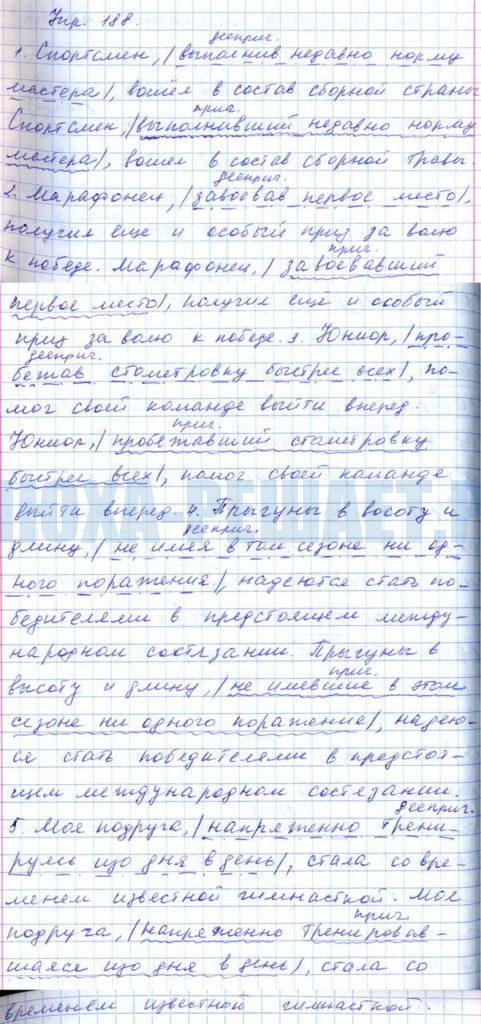 Упр. 188.
дееприч.
1. Спортсмен, /выполнив недавно норму
мастера/, вошёл в состав сборной страны
прич.
Спортсмен, /выполнивший недавно норму
мастера/, вошел в состав сборной
дееприч.
2. Марафонец, /завоевав первое место/,
получил еще и особый приз за волю
прич.
к победе. Марафонец, / завоевавший
первое место/, получил ещё и особый
приз за волю к победе. 3. Юниор, /про-
дееприч.
бежав стометровку быстрее всех/, по-
мог своей команде выйти вперед.
прич.
Юниор, / пробежавший стометровку
быстрее всех/, помог своей команде
выйти вперед. 4. Прыгуны в высоту и
дееприч.
длину, / не имея в том сезоне ни од-
ного поражения/, надеются стать по-
бедителями в предстоящем между-
народном состязании. Прыгуны в
прич.
высоту и длину, /не имевшие в этом
сезоне ни одного поражение/, надею-
ся стать победителями в предстоя-
щем международном состязании.
дееприч.
5. Моя подруга, /напряженно трени-
руясь изо дня в день/, стала со вре-
менем известной гимнасткой. Моя
прич.
подруга, /напряженно тренировав-
шаяся изо дня в день/, стала со
временем известной гимнасткой.